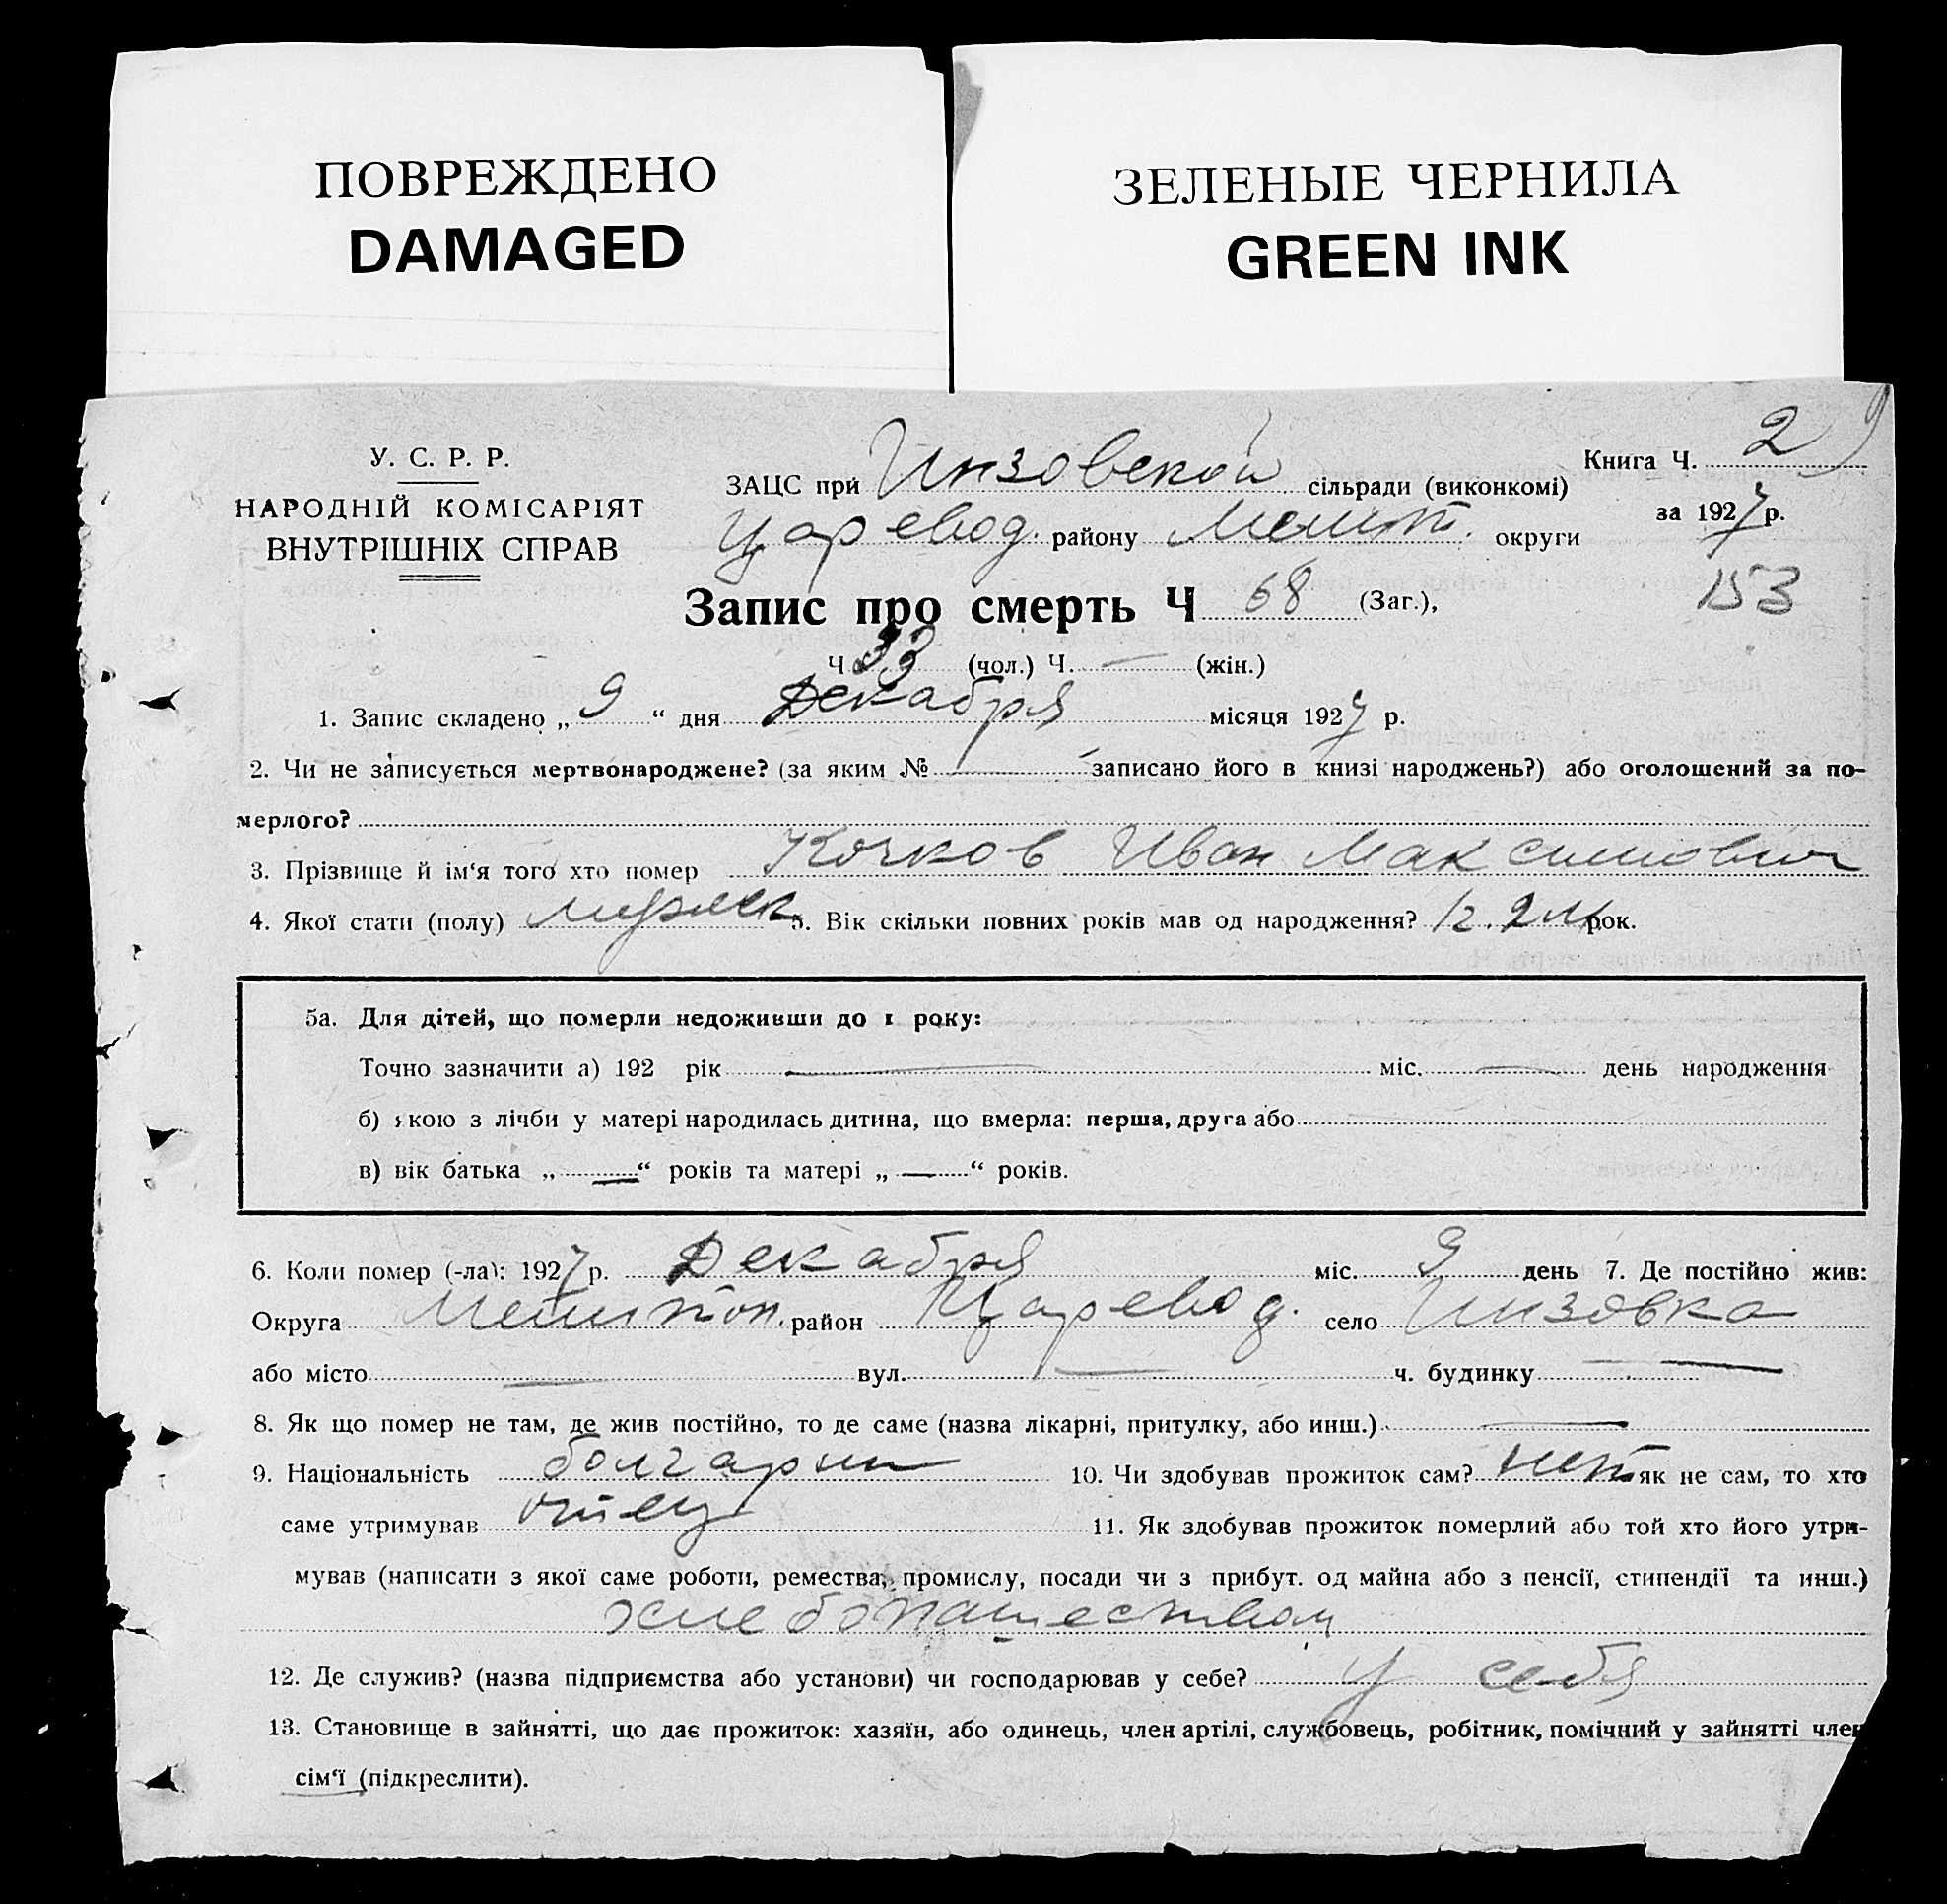 ПОВРЕЖДЕНО
DAMAGED
ЗЕЛЕНЫЕ ЧЕРНИЛА
GREEN INK
У. С. Р. Р.
НАРОДНІЙ КОМІСАРІЯТ
ВНУТРІШНІХ СПРАВ
ЗАЦС при Инзовской сільради (виконкомі)
Царевод. району Мелит. округи
Книга Ч. 2
за 1927 р.
153
Запис про смерть Ч 68 (Заг.),
Ч 33 (чол.) Ч. — (жін.)
1. Запис складено „ 9 “ дня Декабря місяця 1927 р.
2. Чи не записується мертвонароджене? (за яким № — записано його в книзі народжень?) або оголошений за по-
мерлого?
3. Прізвище й ім‘я того хто помер Кочков Иван Максимович
4. Якої стати (полу) мужск. 5. Вік скільки повних років мав од народження? 1г. 2 м. рок.
5а. Для дітей, що померли недоживши до 1 року:
Точно зазначити а) 192 рік — міс. — день народження
б) якою з лічби у матері народилась дитина, що вмерла: перша, друга або
в) вік батька „ — “ років та матері „ — “ років.
6. Коли помер (-ла): 1927 р. Декабря міс. 9 день 7. Де постійно жив:
Округа Мелитоп. район Царевод. село Инзовка
або місто — вул. — ч. будинку —
8. Як що помер не там, де жив постійно, то де саме (назва лікарні, притулку, або инш.) —
9. Національність болгарин 10. Чи здобував прожиток сам? нет як не сам, то хто
саме утримував отец 11. Як здобував прожиток померлий або той хто його утри-
мував (написати з якої саме роботи, ремества, промислу, посади чи з прибут. од майна або з пенсії, стипендії та инш.)
хлебопашеством
12. Де служив? (назва підприємства або установи) чи господарював у себе? у себя
13. Становище в зайнятті, що дає прожиток: хазяїн, або одинець, член артілі, службовець, робітник, помічний у зайнятті член
сім‘ї (підкреслити).